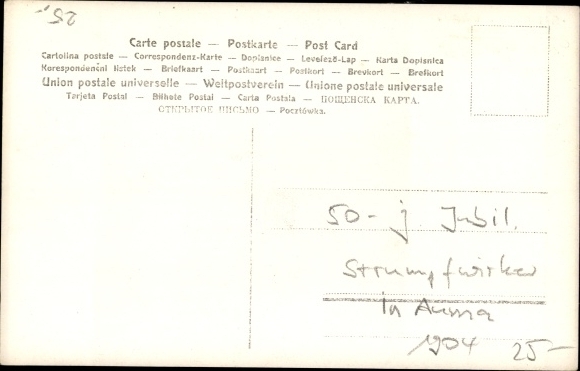 25,
Carte postale — Postkarte — Post Card
Cartolina postale — Correspondenz-Karte — Dopisnice — Levelező-Lap — Karta Dopisnica
Korespondenční lístek — Briefkaart — Postkaart — Postkort — Brevkort — Brefkort
Union postale universelle — Weltpostverein — Unione postale universale
Tarjeta Postal — Bilhete Postal — Carta Postala — ПОЩЕНСКА КАРТА.
ОТКРЫТОЕ ПИСЬМО — Pocztówka.
50-j. Jubil.
Strumpfwirker
in Auma
1904 25—